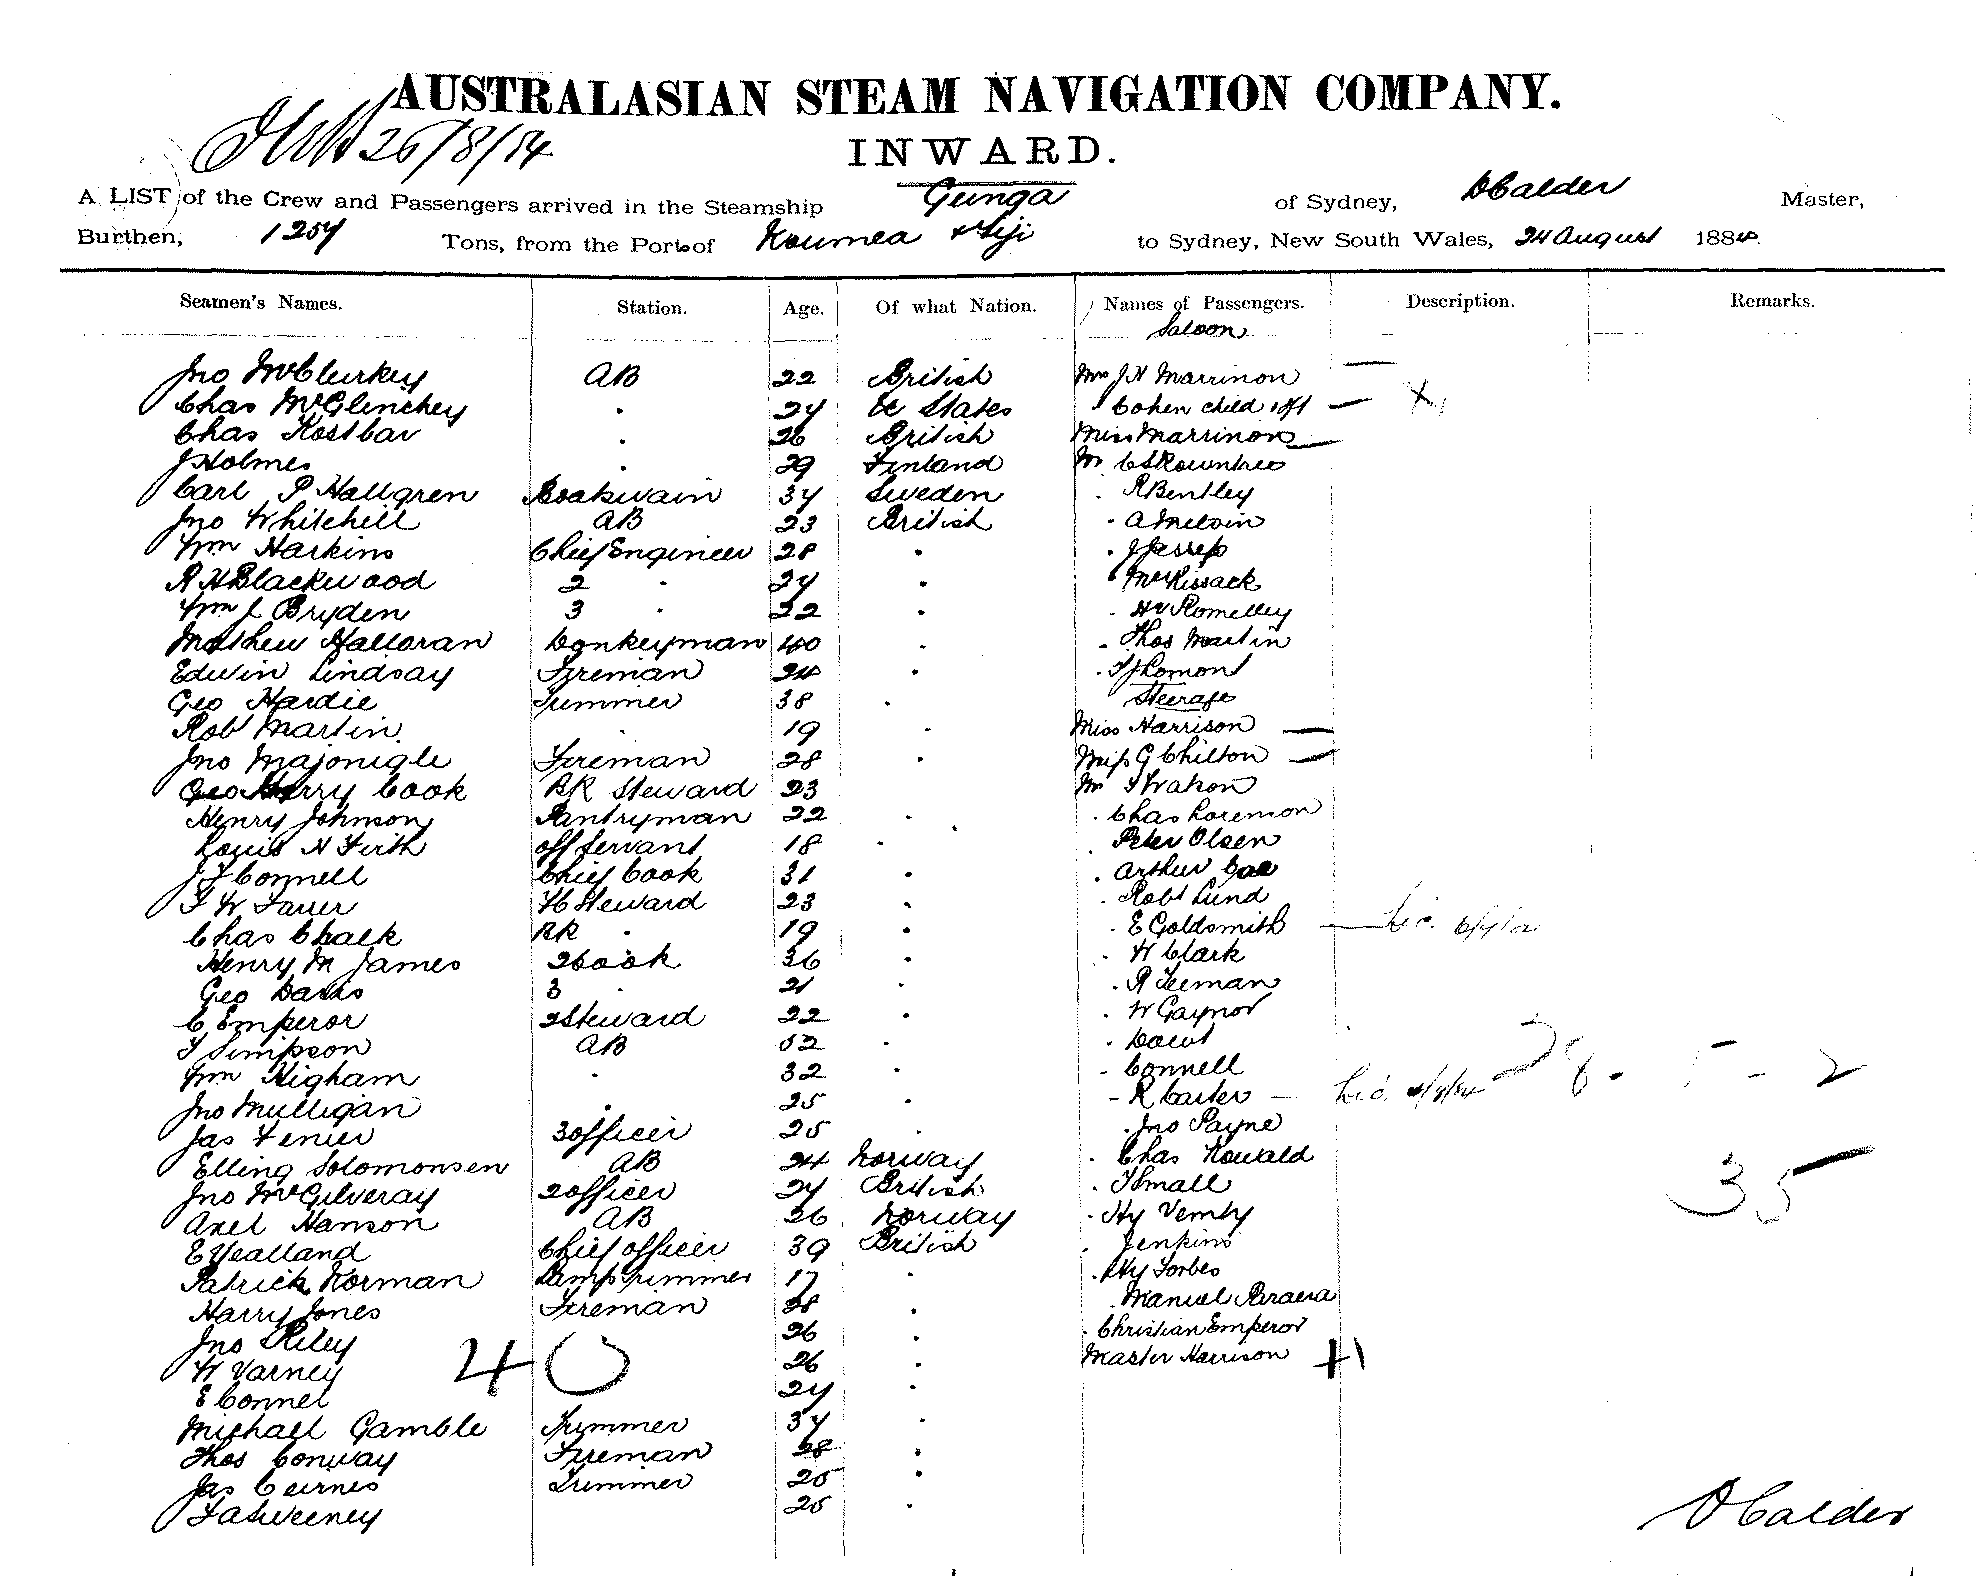 AUSTRALASIAN STEAM NAVIGATION COMPANY.
26/8/84
INWARD.
A LIST of the Crew and Passengers arrived in the Steamship Gunga of Sydney, D Calder Master,
Burthen, 1257 Tons, from the Port of Noumea & Fiji to Sydney, New South Wales, 24 August 1884.
Seamen's Names. Station. Age. Of what Nation. Names of Passengers. Description. Remarks.
Saloon
Jno McClurkey AB 22 British Mrs J H Marrinon —
Chas McGlinchey . 24 U States . Cohen child — X
Chas Kostbar . 26 British Miss Marrinon —
J Holmes . 29 Finland Mr C S Rowntree
Carl P Hallgren Boatswain 34 Sweden . R Bentley
Jno Whitehill AB 23 British . A Melvin
Wm Harkins Chief Engineer 28 . . J Jessep
R H Blackwood 2 . 24 . . McKissack
Wm J Bryden 3 . 22 . . Hy Romelley
Mathew Halloran Donkeyman 40 . . Thos Martin
Edwin Lindsay Fireman 24 . . T J Lomont
Geo Hardie Trimmer 38 . Steerage
Rob Martin . 19 . Miss Harrison —
Jno Majonigle Fireman 28 . Miss G Chilton —
Harry Cook BR Steward 23 Mr T Watson
Henry Johnson Pantryman 22 . . Chas Loremon
Louis H Firth Off Servant 18 . . Peter Olsen
J F Connell Chief Cook 31 . . Arthur
F W Farrer FC Steward 23 . . Robt Lund
Chas Chalk BR . 19 . . E Goldsmith —
Henry M James 2 Cook 36 . . H Clark
Geo Davis 3 . 21 . . R Leeman
C Emperor 2 Steward 22 . . W Gaynor
F Simpson AB 52 . . Dawt
Wm Higham . 32 . . Connell
Jno Mulligan . 25 . - R Carter — 8 - 5 - 2
Jas Venier 3 officer 25 . . Jno Payne
Elling Solomonsen AB 24 Norway . Chas Kowald
Jno McGilveray 2 officer 24 British . T Small 35
Axel Hanson AB 26 Norway . Hy Vemby
E Yealland Chief officer 39 British . Jenkins
Patrick Norman Lamp Trimmer 17 . . Hy Forbes
Harry Jones Fireman 28 . . Manuel
Jno Riley 26 . . Christian Emperor
W Varney 26 . Master Harrison +1
40
E Connel 24 .
Michael Gamble Trimmer 34 .
Thos Conway Fireman 28 .
Jas Cairnes Trimmer 25 .
F A Sweeney 25 .
D Calder